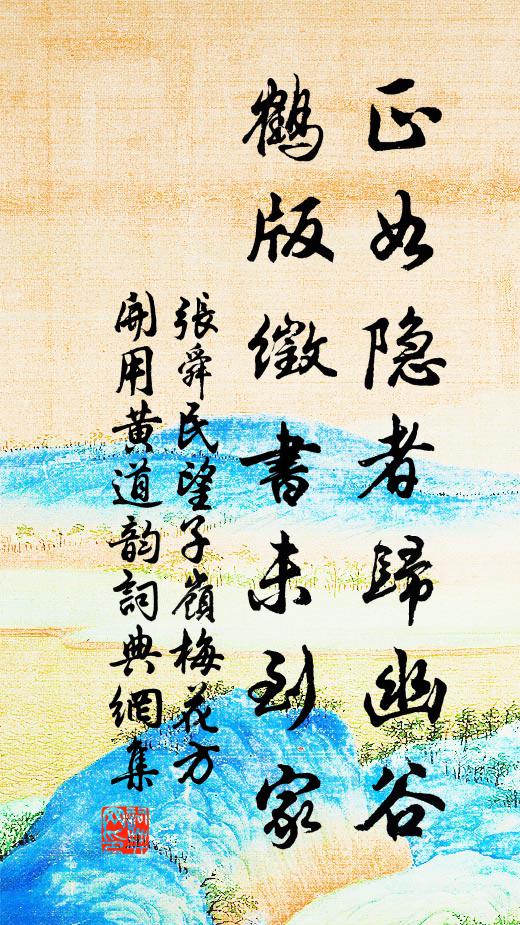 正如隐者歸幽谷
鶴版徵書未到家
張舜民望子嶺梅花方
開用黄道韵詞典網集